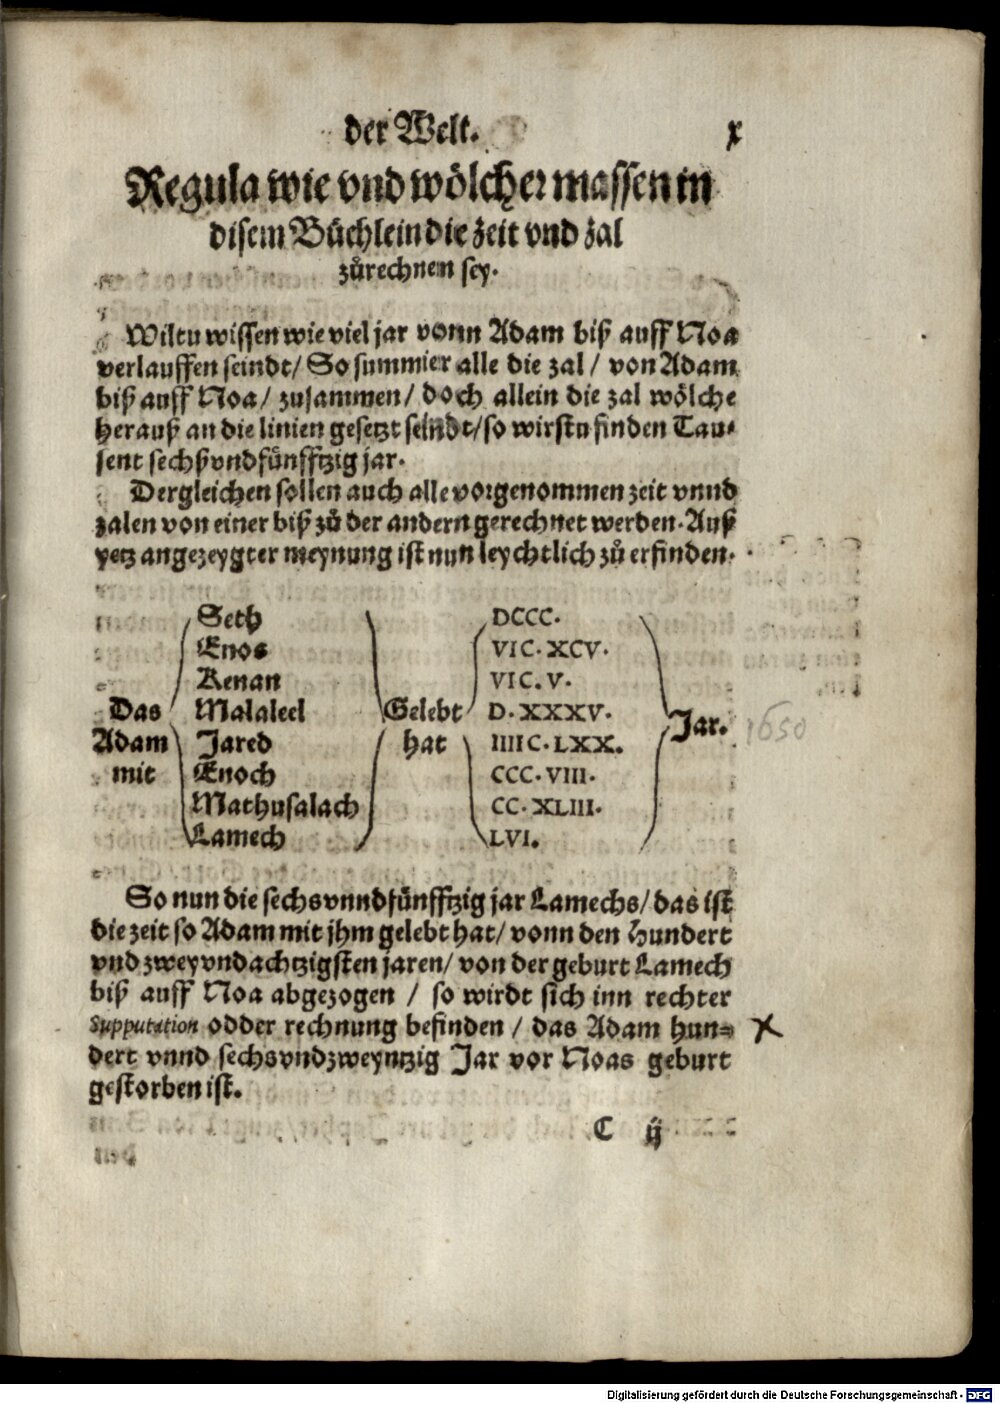 der Welt. x
Regula wie vnd wölcher massen in
disem Büchlein die zeit vnd zal
zůrechnen sey.
Wiltu wissen wie viel jar vonn Adam biß auff Noa
verlauffen seindt/ So summier alle die zal / von Adam
biß auff Noa/ zusammen/ doch allein die zal wölche
herauß an die linien gesetzt seindt/so wirstu finden Tau-
sent sechßvndfünfftzig jar.
Dergleichen sollen auch alle vorgenommen zeit vnnd
zalen von einer biß zů der andern gerechnet werden. Auß
yetz angezeygter meynung ist nun leychtlich zů erfinden.
Seth DCCC.
Enos VIC. XCV.
Kenan VIC. V.
Das Malaleel Gelebt D. XXXV. Jar. 1650
Adam Jared hat IIIIC. LXX.
mit Enoch CCC. VIII.
Mathusalach CC. XLIII.
Lamech LVI.
So nun die sechsvnndfünfftzig jar Lamechs/ das ist
die zeit so Adam mit jhm gelebt hat/ vonn den hundert
vnd zweyvndachtzigsten jaren/ von der geburt Lamech
biß auff Noa abgezogen / so wirdt sich inn rechter
Supputation odder rechnung befinden / das Adam hun-
dert vnnd sechsvndzweyntzig Jar vor Noas geburt
gestorben ist.
C ij
Digitalisierung gefördert durch die Deutsche Forschungsgemeinschaft - DFG